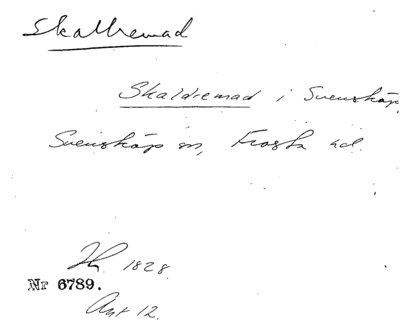 Skallremad
Skaldremad i Svensköp,
Svensköp sn, Frosta hd.
1828.
Nr 6789.
Akt 12.